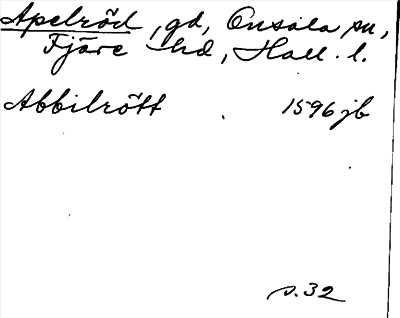 Apelröd, gd, Onsala sn,
Fjäre hd, Hall. l.
Abbilrött 1596 jb
s. 32